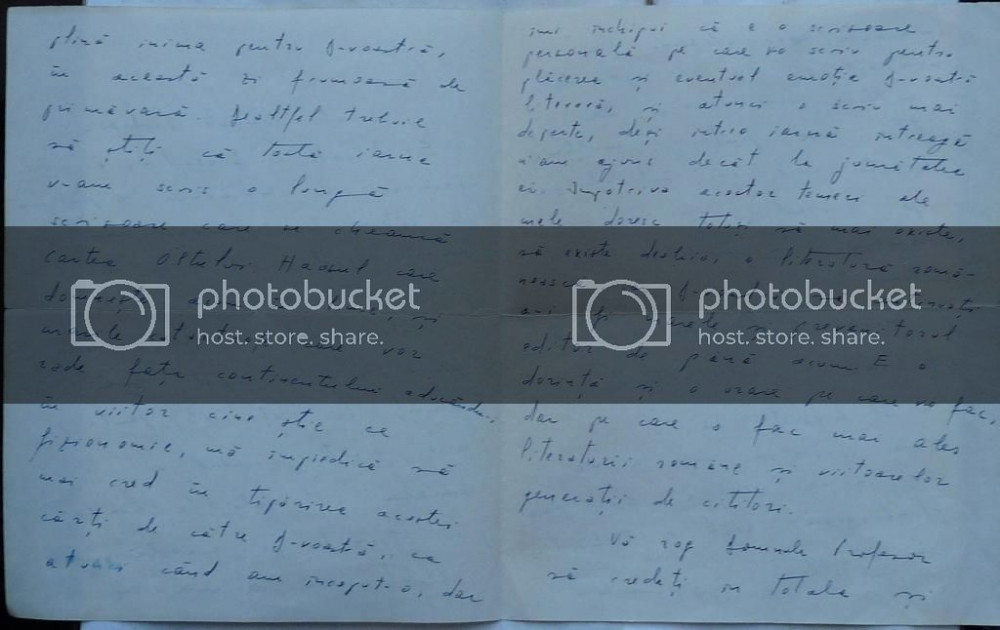 plină inima pentru D-voastră,
în această zi frumoasă de
primăvară. Dealtfel trebuie
să știți că toată iarna
v-am scris o lungă
scrisoare care se cheamă
cartea Oltului. Haosul care
domnește
care vor
rade fața continentului aducându-i
în viitor cine știe ce
fizionomie, mă împiedică să
mai cred în tipărirea acestei
cărți de către D-voastră, ca
atunci când am început-o, dar
îmi închipui că e o scrisoare
personală pe care vo scriu pentru
plăcerea și eventual emoția D-voastră
literară, și atunci o scriu mai
departe, deși într-o iarnă întreagă
n-am ajuns decât la jumătatea
ei. Împotriva acestor temeri ale
mele doresc totuși să mai existe,
să existe deschis, o literatură româ-
nească
editor de până acum. E o
dorință și o urare pe care vo fac,
dar pe care o fac mai ales
literaturii române și viitoarelor
generații de cititori.
Vă rog Domnule Profesor
să credeți în totala și
photobucket
host. store. share.
photobucket
host. store. share.